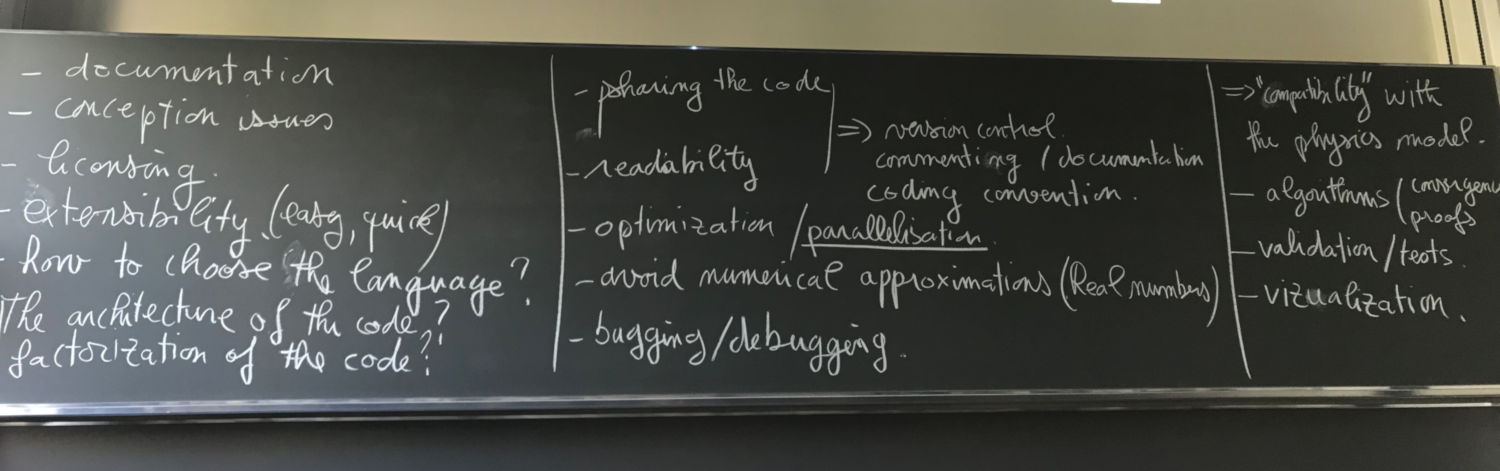 - documentation
- conception issues
- licensing.
- extensibility (easy, quick)
- how to choose the language?
The architecture of the code?
factorization of the code?
- sharing the code
- readability
=> version control.
commenting / documentation
coding convention.
- optimization / parallelisation.
- avoid numerical approximations (Real numbers)
- bugging/debugging.
=> "compatibility" with
the physics model.
- algorithms / convergence
proofs
- validation / tests.
- vizualization.